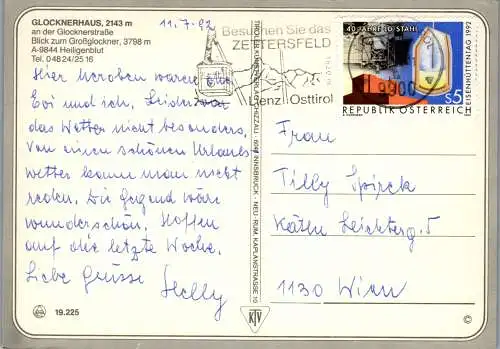 GLOCKNERHAUS, 2143 m
an der Glocknerstraße
Blick zum Großglockner, 3798 m
A-9844 Heiligenblut
Tel. 04824/2516
11.7.92
Hier heroben waren
Evi und ich. Leider war
das Wetter nicht besonders.
Von einem schönen Urlaubs
wetter kann man nicht
reden. Die Gegend wäre
wunderschön. Hoffen
auf die letzte Woche.
Liebe Grüsse Helly
19.225
TIROLER KUNSTVERLAG CHIZZALI · 6040 INNSBRUCK - NEU- RUM, KAPLANSTRASSE 10
KTV
Besuchen Sie das
ZETTERSFELD
Lienz Osttirol
9900
40 JAHRE LD STAHL
EISENHÜTTENTAG 1992
S5
REPUBLIK ÖSTERREICH
Frau
Tilly Spirck
Käthe Leichterg. 5
1130 Wien
©